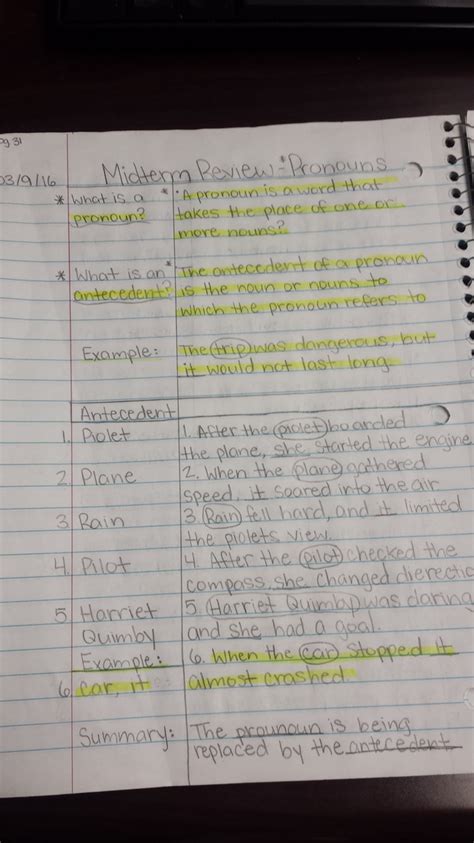 pg 31
03/9/16 Midterm Review - Pronouns
* What is a * • A pronoun is a word that
pronoun? takes the place of one or
more nouns?
* What is an * The antecedent of a pronoun
antecedent? is the noun or nouns to
which the pronoun refers to
Example: The trip was dangerous, but
it would not last long
Antecedent
1. Piolet 1. After the piolet boarded
the plane, she started the engine
2. Plane 2. When the plane gathered
speed, it soared into the air
3. Rain 3. Rain fell hard, and it limited
the piolets view.
4. Pilot 4. After the pilot checked the
compass, she changed dierectio
5. Harriet 5. Harriet Quimby was daring
Quimby and she had a goal.
Example: 6. When the car stopped it
6. car, it almost crashed
Summary: The prounoun is being
replaced by the antecedent